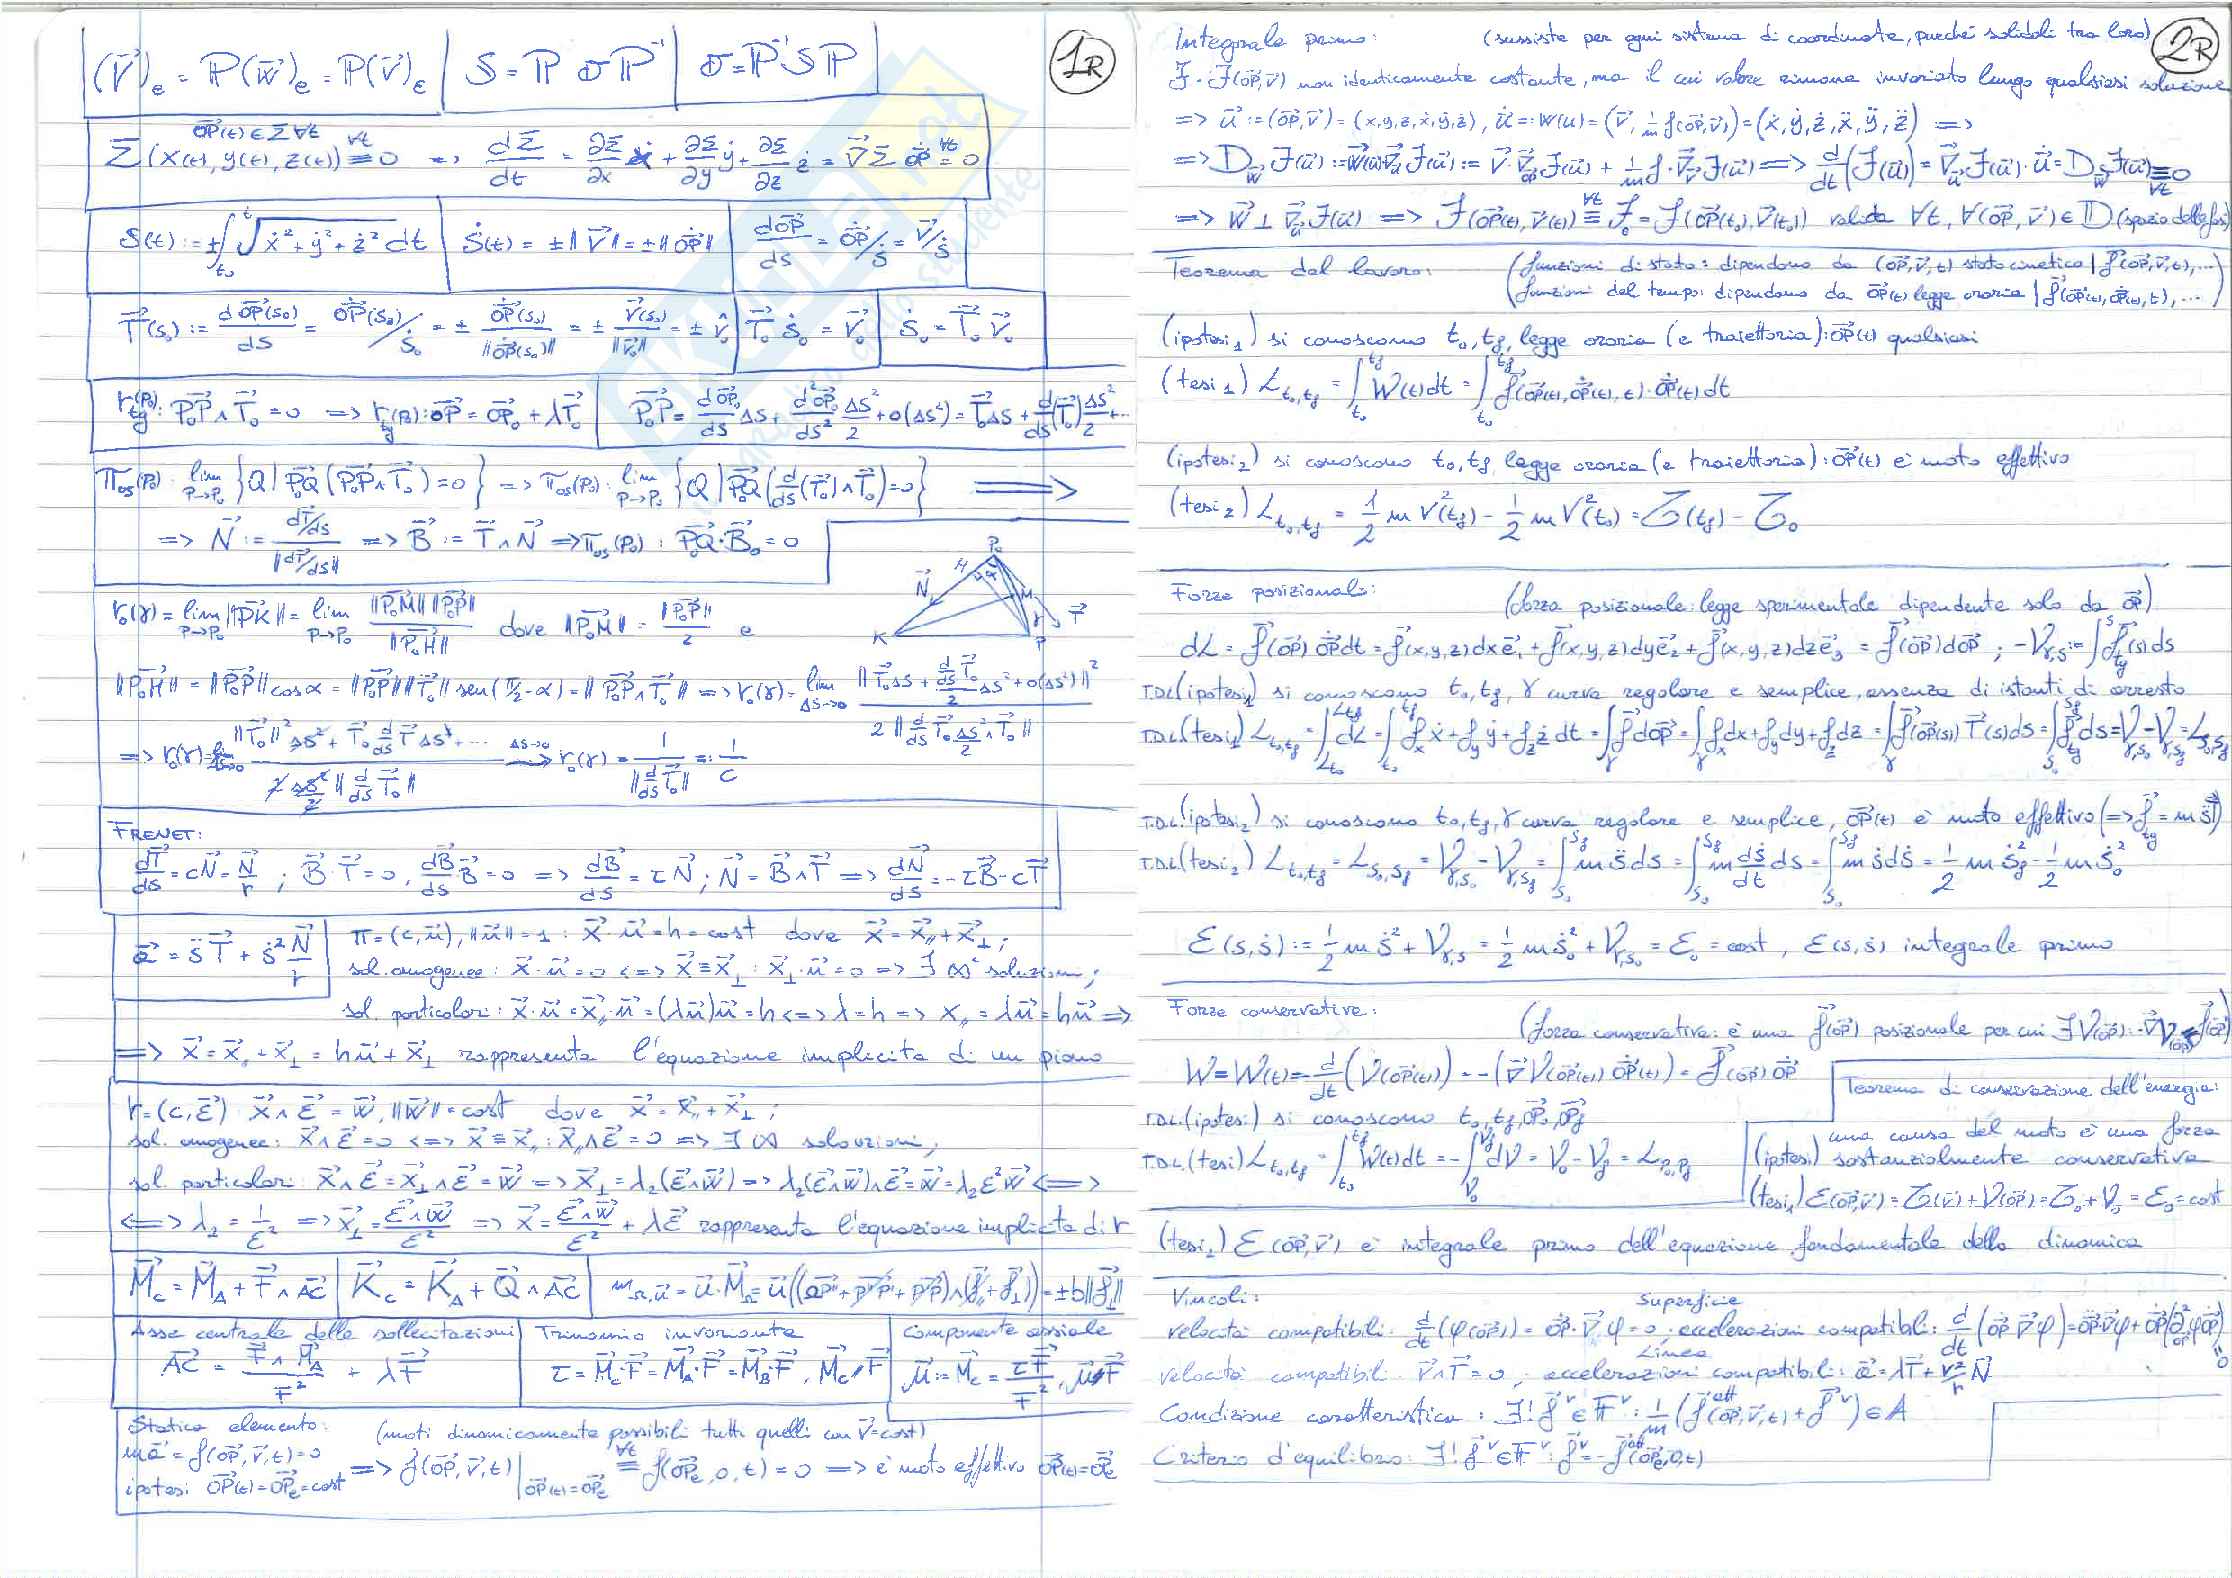 1R
(v⃗)ₑ = ℙ(w⃗)ₑ = ℙ(v⃗)_ε | S = ℙ σ ℙ⁻¹ | σ = ℙ⁻¹ S ℙ
OP⃗(t) ∈ Σ ∀t
Σ(x(t), y(t), z(t)) ≡ 0 => dΣ/dt = ∂Σ/∂x ẋ + ∂Σ/∂y ẏ + ∂Σ/∂z ż = ∇⃗Σ OP⃗̇ = 0
S(t) := ± ∫ₜ₀ᵗ √(ẋ² + ẏ² + ż²) dt | Ṡ(t) = ± ‖V⃗‖ = ± ‖OP⃗̇‖ | dOP⃗/ds = OP⃗̇/Ṡ = V⃗/Ṡ
T⃗(s₀) := dOP⃗(s₀)/ds = OP⃗̇(s₀)/Ṡ₀ = ± OP⃗̇(s₀)/‖OP⃗̇(s₀)‖ = ± V⃗(s₀)/‖V⃗₀‖ = ± v̂₀ | T⃗₀ Ṡ₀ = V⃗₀ | Ṡ₀ = T⃗₀ V⃗₀
r_tg(P₀): P₀P⃗ ∧ T⃗₀ = 0 => r_tg(P₀): OP⃗ = OP⃗₀ + λT⃗₀ | P₀P⃗ = dOP⃗₀/ds Δs + d²OP⃗₀/ds² Δs²/2 + o(Δs²) = T⃗₀Δs + d/ds(T⃗₀) Δs²/2 + ...
π_os(P₀): lim P→P₀ {Q | P₀Q⃗ (P₀P⃗ ∧ T⃗₀) = 0} => π_os(P₀): lim P→P₀ {Q | P₀Q⃗ (d/ds(T⃗₀) ∧ T⃗₀) = 0} =>
=> N⃗ := (dT⃗/ds)/‖dT⃗/ds‖ => B⃗ := T⃗ ∧ N⃗ => π_os(P₀): P₀Q⃗ · B⃗₀ = 0
P₀ H α M N⃗ T⃗ K P
r₀(γ) = lim P→P₀ ‖PK⃗‖ = lim P→P₀ ‖P₀M⃗‖ ‖P₀P⃗‖ / ‖P₀H⃗‖ dove ‖P₀M⃗‖ = ‖P₀P⃗‖/2 e
‖P₀H⃗‖ = ‖P₀P⃗‖ cos α = ‖P₀P⃗‖ ‖T⃗₀‖ sen(π/2 - α) = ‖P₀P⃗ ∧ T⃗₀‖ => r₀(γ) = lim Δs→0 ‖T⃗₀Δs + d/ds T⃗₀ Δs²/2 + o(Δs²)‖² / 2‖d/ds T⃗₀ Δs²/2 ∧ T⃗₀‖
=> r₀(γ) = lim ‖T⃗₀‖² Δs² + T⃗₀ d/ds T⃗ Δs³ + ... / 2 Δs²/2 ‖d/ds T⃗₀‖ Δs→0 → r₀(γ) = 1/‖d/ds T⃗₀‖ =: 1/c
FRENET:
dT⃗/ds = cN⃗ = N⃗/r ; B⃗ · T⃗ = 0, dB⃗/ds B⃗ = 0 => dB⃗/ds = τN⃗ ; N⃗ = B⃗ ∧ T⃗ => dN⃗/ds = -τB⃗ - cT⃗
a⃗ = s̈ T⃗ + ṡ² N⃗/r
π = (c, u⃗), ‖u⃗‖ = 1 : x⃗ · u⃗ = h = cost dove x⃗ = x⃗∥ + x⃗⊥ ;
sol. omogenee: x⃗ · u⃗ = 0 <=> x⃗ ≡ x⃗⊥ : x⃗⊥ · u⃗ = 0 => ∃ ∞² soluzioni ;
sol. particolari: x⃗ · u⃗ = x⃗∥ · u⃗ = (λu⃗)u⃗ = h <=> λ = h => x∥ = λu⃗ = hu⃗ =>
=> x⃗ = x⃗∥ + x⃗⊥ = hu⃗ + x⃗⊥ rappresenta l'equazione implicita di un piano
r = (c, ε⃗) x⃗ ∧ ε⃗ = w⃗, ‖w⃗‖ = cost dove x⃗ = x⃗∥ + x⃗⊥ ;
sol. omogenee: x⃗ ∧ ε⃗ = 0 <=> x⃗ ≡ x⃗∥ : x⃗∥ ∧ ε⃗ = 0 => ∃ ∞ soluzioni ;
sol. particolari: x⃗ ∧ ε⃗ = x⃗⊥ ∧ ε⃗ = w⃗ => x⃗⊥ = λ₂(ε⃗ ∧ w⃗) => λ₂(ε⃗ ∧ w⃗) ∧ ε⃗ = w⃗ = λ₂ε²w⃗ <=>
<=> λ₂ = 1/ε² => x⃗⊥ = ε⃗ ∧ w⃗/ε² => x⃗ = ε⃗ ∧ w⃗/ε² + λε⃗ rappresenta l'equazione implicita di r
M⃗_C = M⃗_A + F⃗ ∧ AC⃗ | K⃗_C = K⃗_A + Q⃗ ∧ AC⃗ | m_Ω,u⃗ = u⃗ · M⃗_Ω = ± b‖f⃗⊥‖
Asse centrale delle sollecitazioni | Trinomio invariante | Componente assiale
AC⃗ = F⃗ ∧ M⃗_A/F² + λF⃗ | τ = M⃗_C · F⃗ = M⃗_A · F⃗ = M⃗_B · F⃗, M⃗_C ∥ F⃗ | μ⃗ := M⃗_C = τF⃗/F², μ⃗ ∥ F⃗
Statica elemento: (moti dinamicamente possibili tutti quelli con v⃗ = cost)
ma⃗ = f(OP⃗, v⃗, t) = 0
ipotesi OP⃗(t) = OP⃗ₑ = cost => f(OP⃗, v⃗, t)|OP⃗(t) = OP⃗ₑ ≡ f(OP⃗ₑ, 0, t) = 0 => è moto effettivo OP⃗(t) = OP⃗ₑ
2R
Integrale primo: (sussiste per ogni sistema di coordinate, purché solidali tra loro)
ℱ = ℱ(OP⃗, v⃗) non identicamente costante, ma il cui valore rimane invariato lungo qualsiasi soluzione
=> u⃗ := (OP⃗, v⃗) = (x, y, z, ẋ, ẏ, ż), u⃗̇ =: w(u) = (v⃗, 1/m f(OP⃗, v⃗)) = (ẋ, ẏ, ż, ẍ, ÿ, z̈) =>
=> D_w⃗ ℱ(u⃗) := w⃗(u) · ∇⃗_u ℱ(u⃗) := v⃗ · ∇⃗_OP ℱ(u⃗) + 1/m f · ∇⃗_v ℱ(u⃗) => d/dt(ℱ(u⃗)) = ∇⃗_u ℱ(u⃗) · u⃗̇ = D_w⃗ ℱ(u⃗) ≡ 0 ∀t
=> w⃗ ⊥ ∇⃗_u ℱ(u⃗) => ℱ(OP⃗(t), v⃗(t)) ≡ ℱ₀ = ℱ(OP⃗(t₀), v⃗(t₀)) valida ∀t, ∀(OP⃗, v⃗) ∈ 𝔻 (spazio delle fasi)
Teorema del lavoro: (funzioni di stato: dipendono da (OP⃗, v⃗, t) stato cinetico | f⃗(OP⃗, v⃗, t), ...)
(funzioni del tempo: dipendono da OP⃗(t) legge oraria | f⃗(OP⃗(t), OP⃗̇(t), t), ...)
(ipotesi₁) si conoscono t₀, t_f, legge oraria (e traiettoria): OP⃗(t) qualsiasi
(tesi₁) L_t₀,t_f = ∫ₜ₀^t_f W(t)dt = ∫ₜ₀^t_f f⃗(OP⃗(t), OP⃗̇(t), t) · OP⃗̇(t) dt
(ipotesi₂) si conoscono t₀, t_f, legge oraria (e traiettoria): OP⃗(t) è moto effettivo
(tesi₂) L_t₀,t_f = 1/2 m V²(t_f) - 1/2 m V²(t₀) = 𝒯(t_f) - 𝒯₀
Forze posizionali: (forza posizionale: legge sperimentale dipendente solo da OP⃗)
dL = f⃗(OP⃗) OP⃗̇dt = f⃗(x, y, z)dx e⃗₁ + f⃗(x, y, z)dy e⃗₂ + f⃗(x, y, z)dz e⃗₃ = f⃗(OP⃗) dOP⃗ ; -V_γ,s := ∫ˢ f⃗_tg(s) ds
T.D.L. (ipotesi₁) si conoscono t₀, t_f, γ curva regolare e semplice, assenza di istanti di arresto
T.D.L. (tesi₁) L_t₀,t_f = ∫ dL = ∫ f_x ẋ + f_y ẏ + f_z ż dt = ∫_γ f⃗ dOP⃗ = ∫_γ f_x dx + f_y dy + f_z dz = ∫_γ f⃗(OP⃗(s)) T⃗(s) ds = ∫ f_tg ds = V_γ,s₀ - V_γ,s_f = L_s₀,s_f
T.D.L. (ipotesi₂) si conoscono t₀, t_f, γ curva regolare e semplice, OP⃗(t) è moto effettivo (=> f_tg = m s̈)
T.D.L. (tesi₂) L_t₀,t_f = L_s₀,s_f = V_γ,s₀ - V_γ,s_f = ∫ m s̈ ds = ∫ m dṡ/dt ds = ∫ m ṡ dṡ = 1/2 m ṡ_f² - 1/2 m ṡ₀²
ℰ(s, ṡ) := 1/2 m ṡ² + V_γ,s = 1/2 m ṡ₀² + V_γ,s₀ = ℰ₀ = cost, ℰ(s, ṡ) integrale primo
Forze conservative: (forza conservativa: è una f⃗(OP⃗) posizionale per cui ∃ V(OP⃗): -∇⃗V(OP⃗) = f⃗(OP⃗))
W = W(t) = -d/dt (V(OP⃗(t))) = -(∇⃗V(OP⃗(t)) OP⃗̇(t)) = f⃗(OP⃗) OP⃗̇
T.D.L. (ipotesi) si conoscono t₀, t_f, OP⃗₀, OP⃗_f
T.D.L. (tesi) L_t₀,t_f = ∫ₜ₀^t_f W(t)dt = -∫ dV = V₀ - V_f = L_P₀,P_f
Teorema di conservazione dell'energia:
(ipotesi) una causa del moto è una forza
sostanzialmente conservativa
(tesi₁) ℰ(OP⃗, v⃗) = 𝒯(v⃗) + V(OP⃗) = 𝒯₀ + V₀ = ℰ₀ = cost
(tesi₂) ℰ(OP⃗, v⃗) è integrale primo dell'equazione fondamentale della dinamica
Vincoli: Superficie
velocità compatibili: d/dt(φ(OP⃗)) = OP⃗̇ · ∇⃗φ = 0 ; accelerazioni compatibili: d/dt(OP⃗̇ ∇⃗φ) = OP⃗̈ ∇⃗φ + OP⃗̇(∂²_OP φ OP⃗̇) = 0
Linea
velocità compatibili: v⃗ ∧ T⃗ = 0 ; accelerazioni compatibili: a⃗ = λT⃗ + v²/r N⃗
Condizione caratteristica: ∃! f⃗ᵛ ∈ 𝔽ᵛ : 1/m (f⃗ᵃᵗᵗ(OP⃗, v⃗, t) + f⃗ᵛ) ∈ A
Criterio d'equilibrio: ∃! f⃗ᵛ ∈ 𝔽ᵛ : f⃗ᵛ = -f⃗ᵃᵗᵗ(OP⃗ₑ, 0, t)